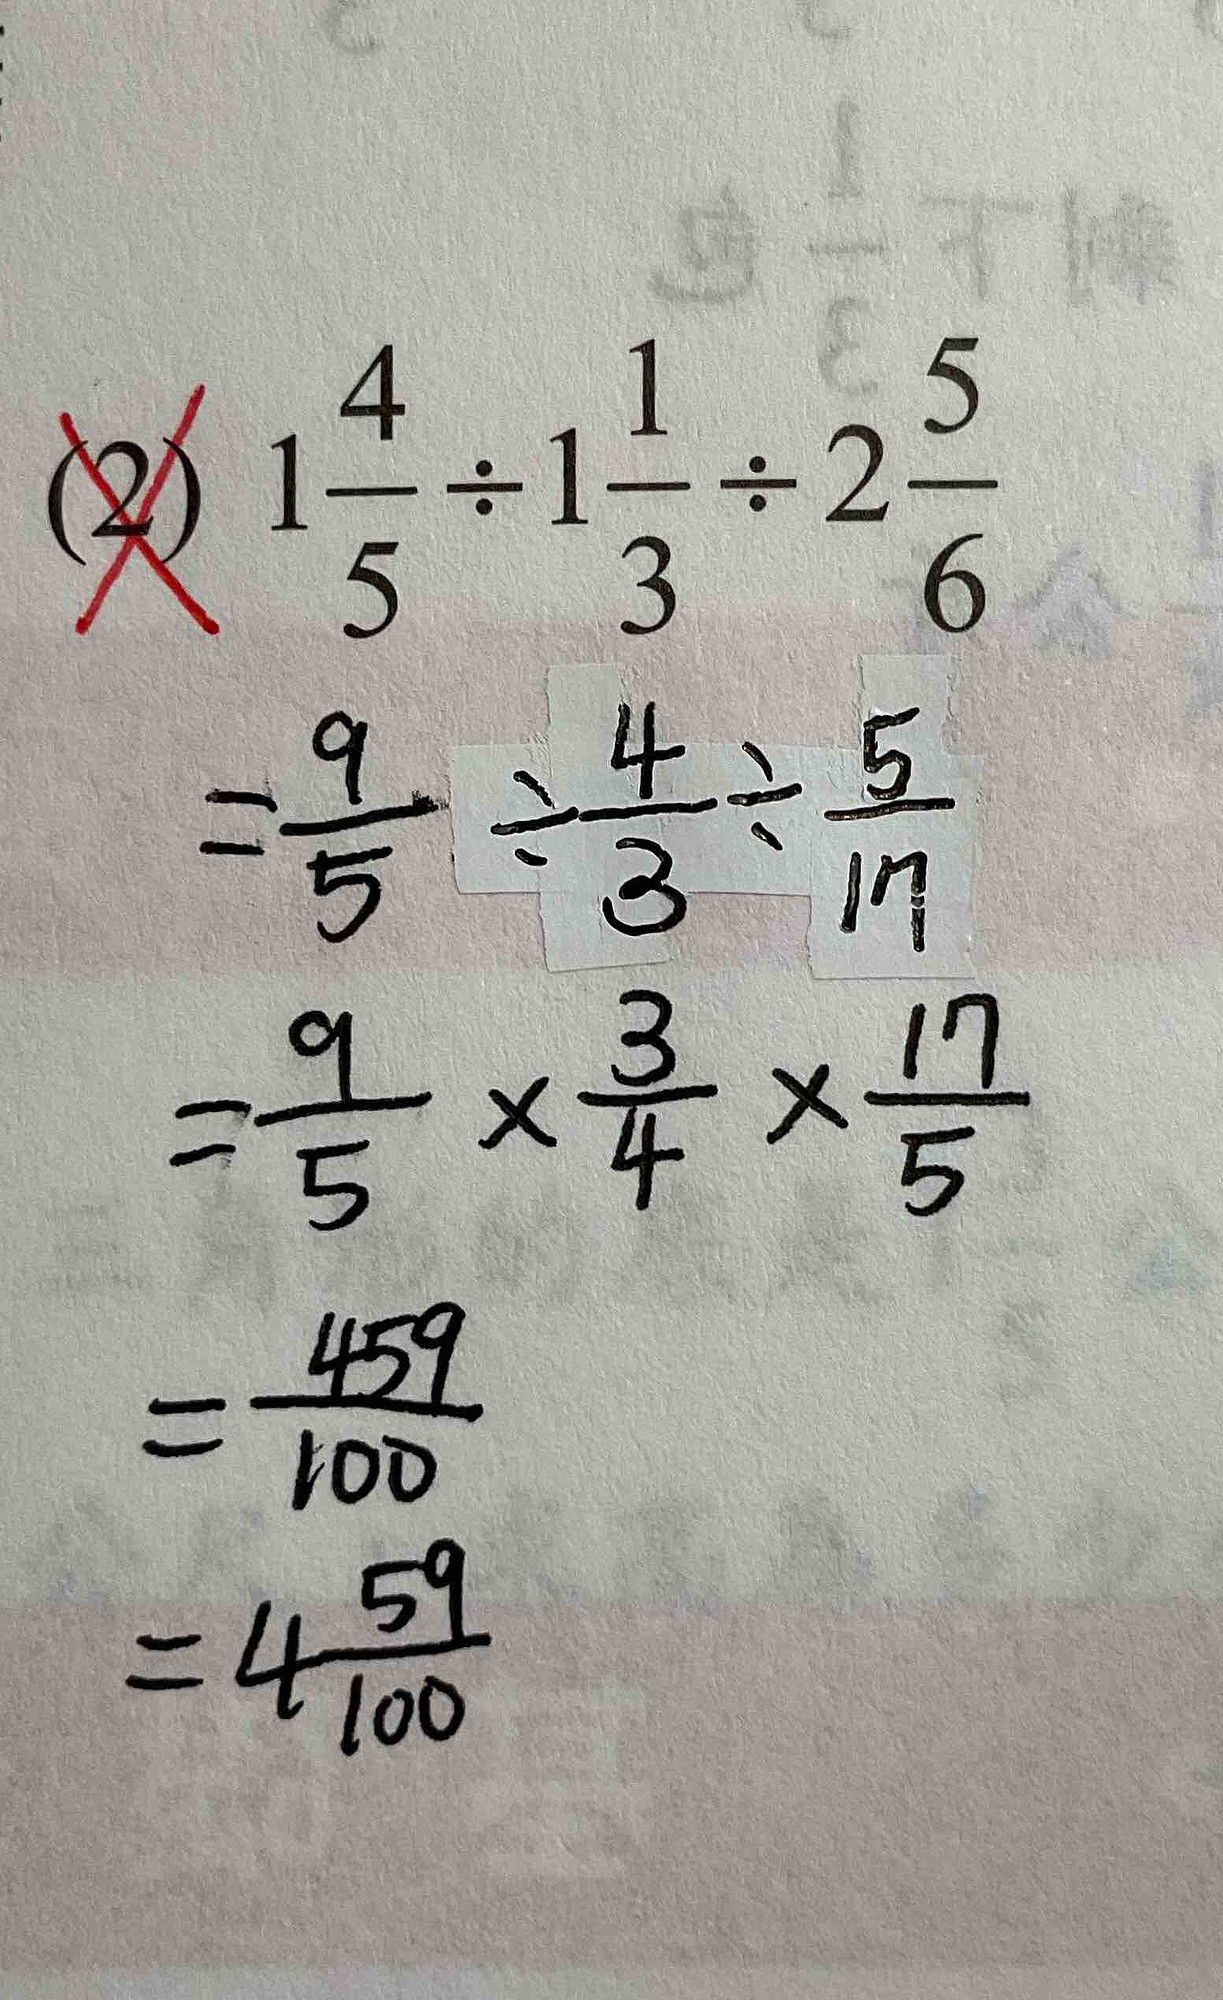 (2) 1 4/5 ÷ 1 1/3 ÷ 2 5/6
= 9/5 ÷ 4/3 ÷ 5/17
= 9/5 × 3/4 × 17/5
= 459/100
= 4 59/100